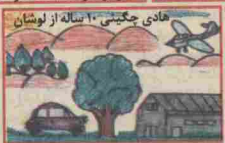 هادی چگینی ۱۰ ساله از لوشان